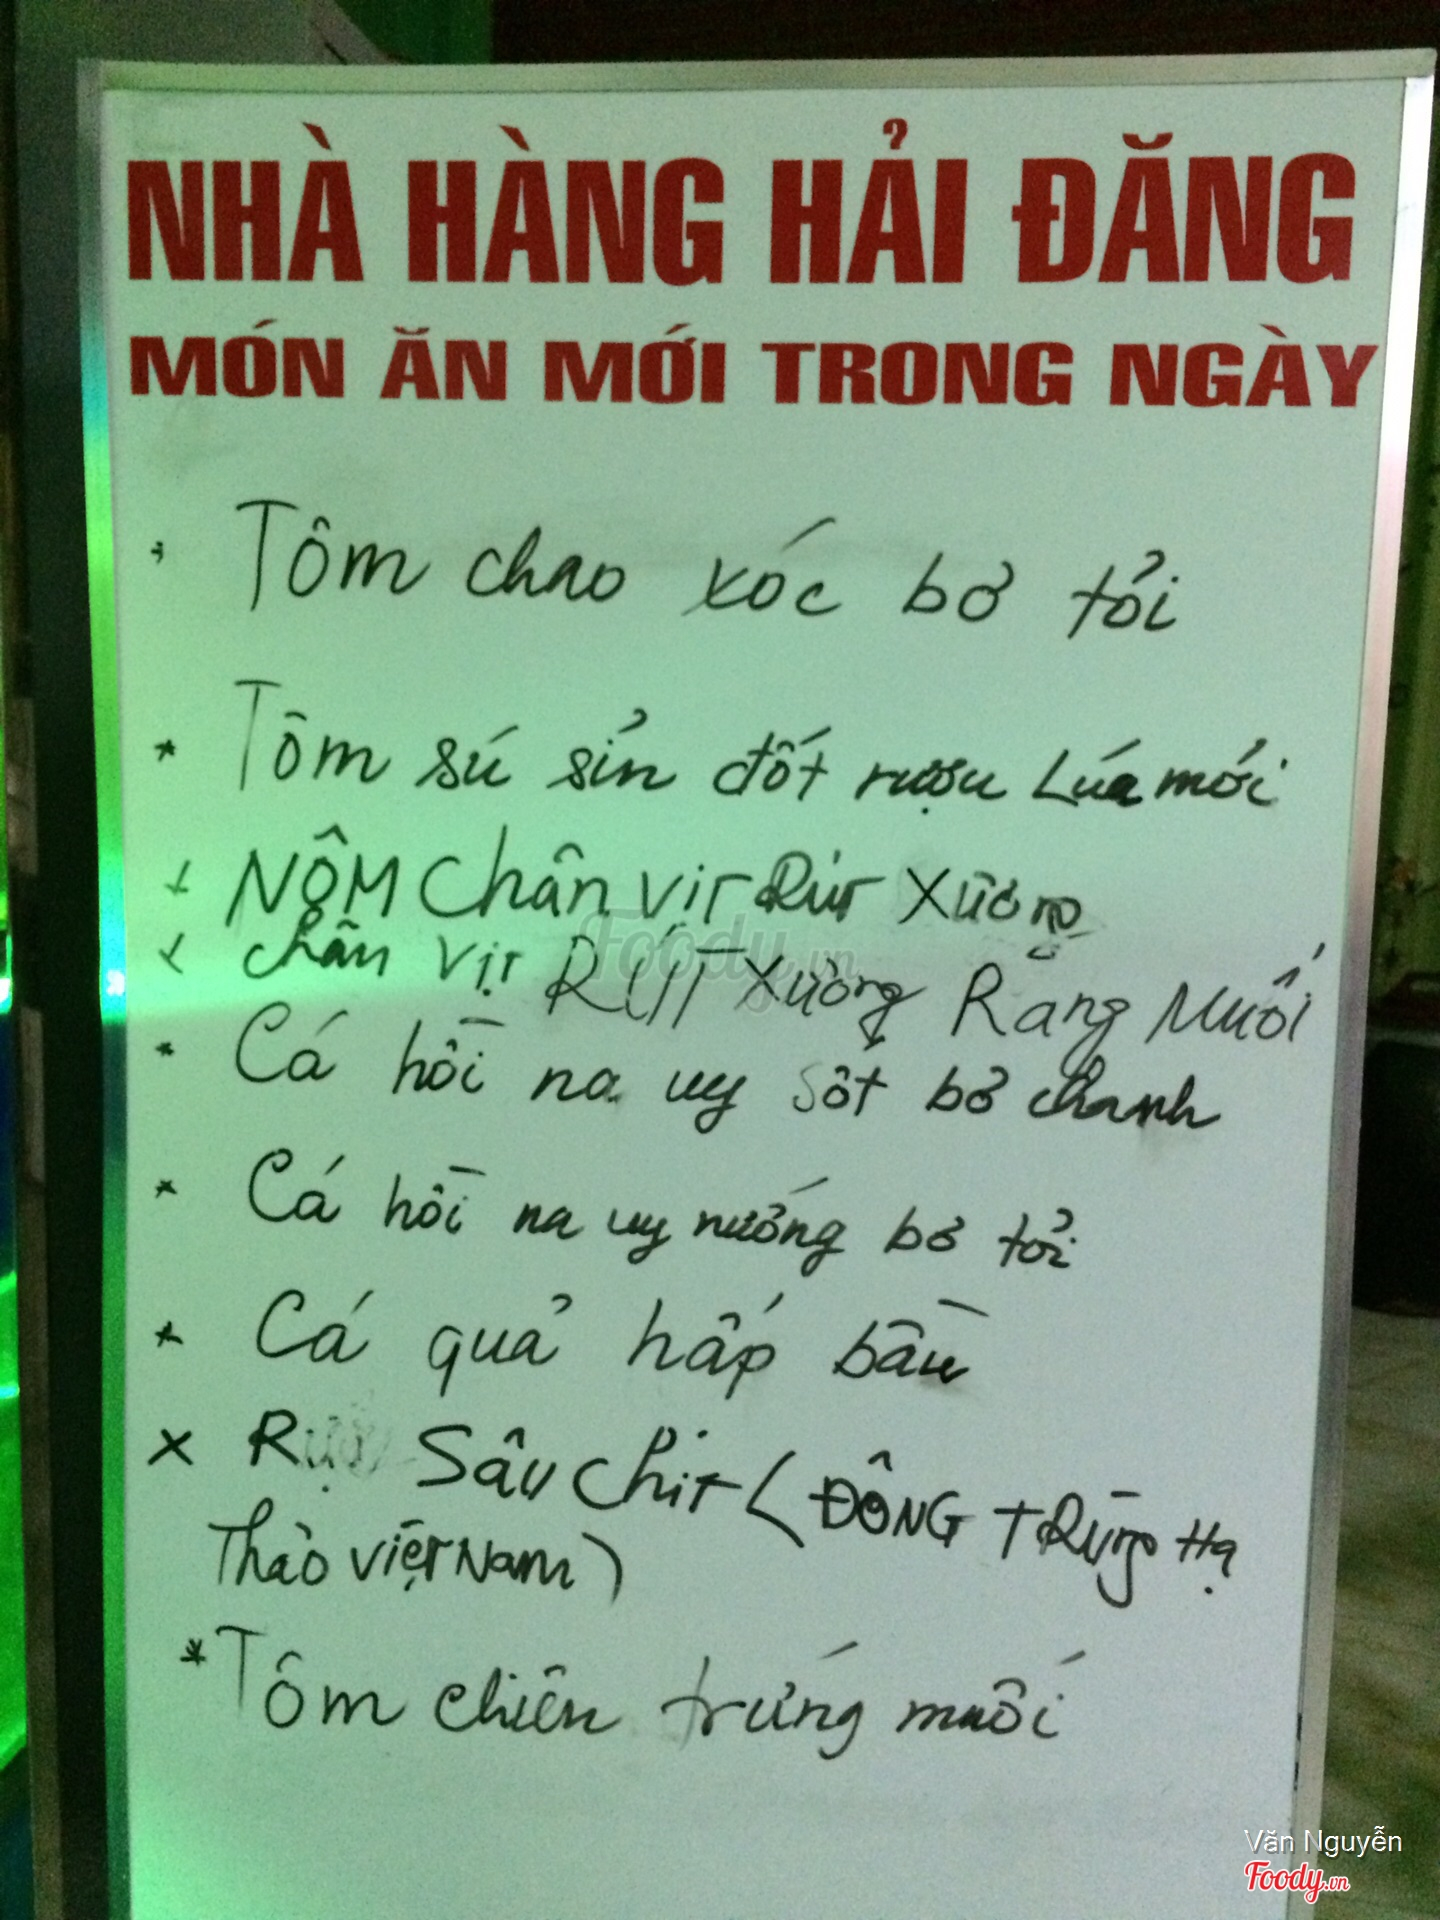 NHÀ HÀNG HẢI ĐĂNG
MÓN ĂN MỚI TRONG NGÀY
* Tôm chao xóc bơ tỏi
* Tôm sú sỉn đốt rượu Lúa mới
+ NỘM Chân Vịt Rút Xương
+ chân vịt RÚT Xương Rang Muối
* Cá hồi na uy sốt bơ chanh
* Cá hồi na uy nướng bơ tỏi
* Cá quả hấp bầu
x Rượu Sâu Chít ( ĐÔNG TRÙNG Hạ
Thảo Việt Nam )
* Tôm chiên trứng muối
Foody.vn
Văn Nguyễn
Foody.vn